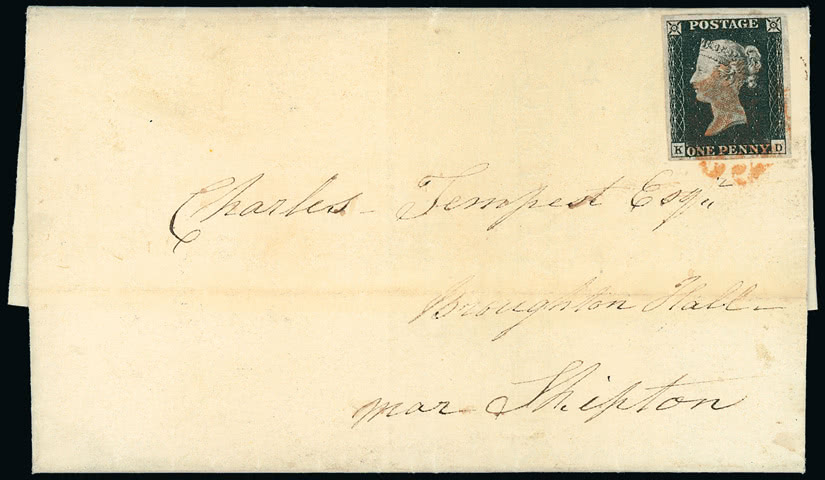 POSTAGE
ONE PENNY
K D
Charles Tempest Esqr
Broughton Hall
near Skipton